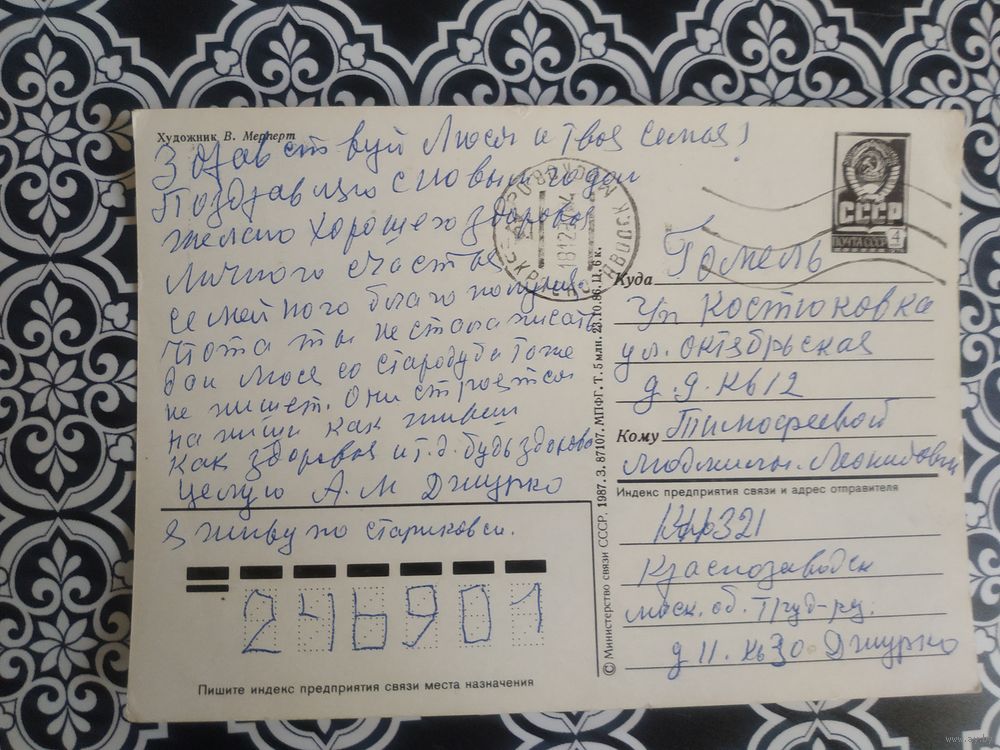 Художник В. Мерперт
Здравствуй Люся и твоя семья!
Поздравляю с новым годом
желаю хорошего здоровья
личного счастья
семейного благополучия
Что та ты не стала писать
Люся со стародуба тоже
не пишет. Они строются
на пиши как живеш
как здоровья и т.д. будь здорова
целую А.М Джурко
Я живу по стариковски.
246901
Пишите индекс предприятия связи места назначения
© Министерство связи СССР. 1987. З. 87107. МПФГ. Т. 5 млн. 23.10.86. Ц. 6 к.
СССР
ПОЧТА СССР 4
Куда Гомель
Костюковка
ул. октябрьская
д. 9. кв 12
Кому Тимофеевой
Людмилы. Леонидовны
Индекс предприятия связи и адрес отправителя
321
Краснозаводск
моск. об.
д 11. кв 30 Джурко